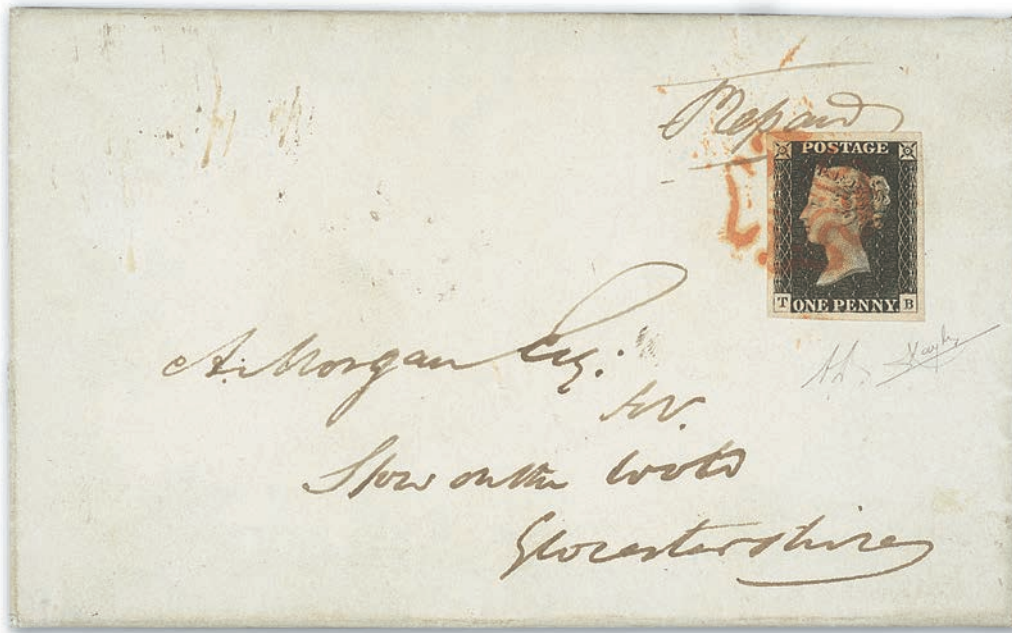 Prepaid
POSTAGE
T ONE PENNY. B
A. Morgan Esq:
Stow on the Wold
Glocestershire